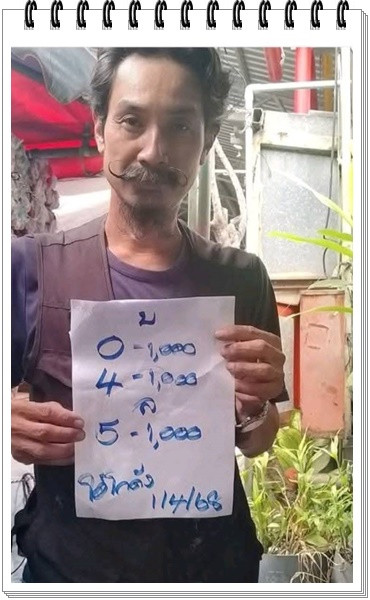 บ
0 - 1,000
4 - 1,000
ล
5 - 1,000
1/4/68